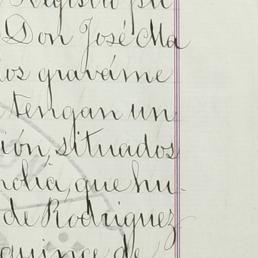 Registro pú-
Don José Ma
os graváme
tengan un
ión, situados
que hu-
de Rodriguez
quince de